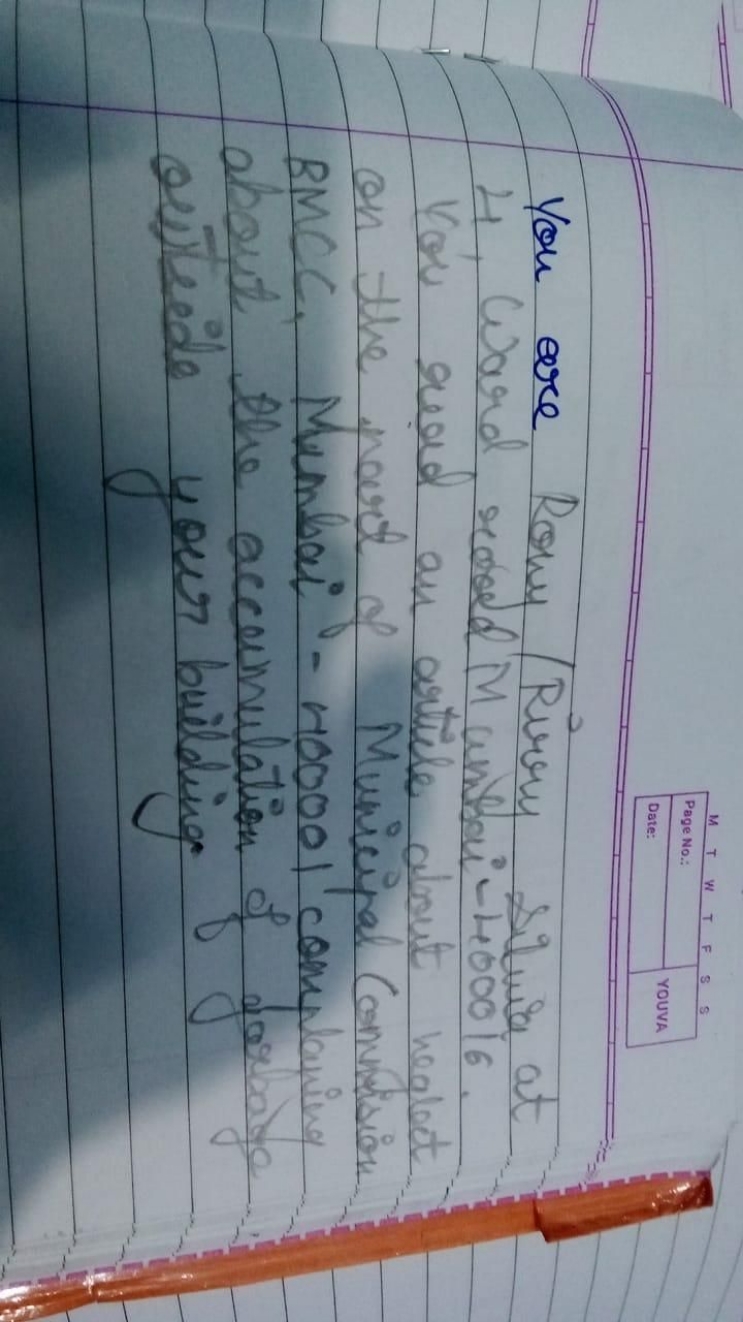 M T W T F S S
Page No.:
Date:
YOUVA
You are Rony / Rirory Silvia at
4, Ward road Mumbai - 400016.
You read an article about neglect
on the part of Municipal Commision
BMCC, Mumbai - 400001 complaning
about the accumulation of garbage
outside your building.